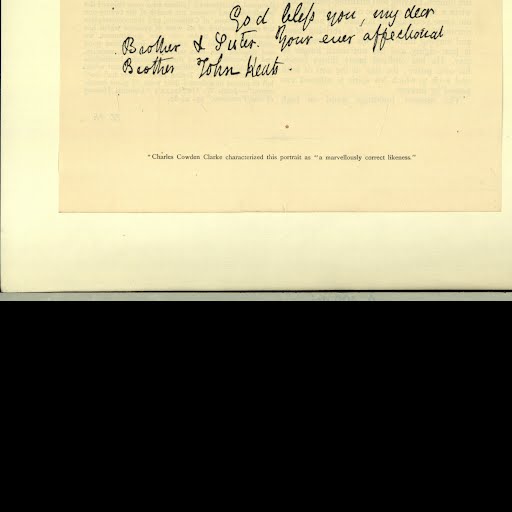 God bless you, my dear
Brother & Sister. Your ever affectionat
Brother John Keats.
"Charles Cowden Clarke characterized this portrait as "a marvellously correct likeness."